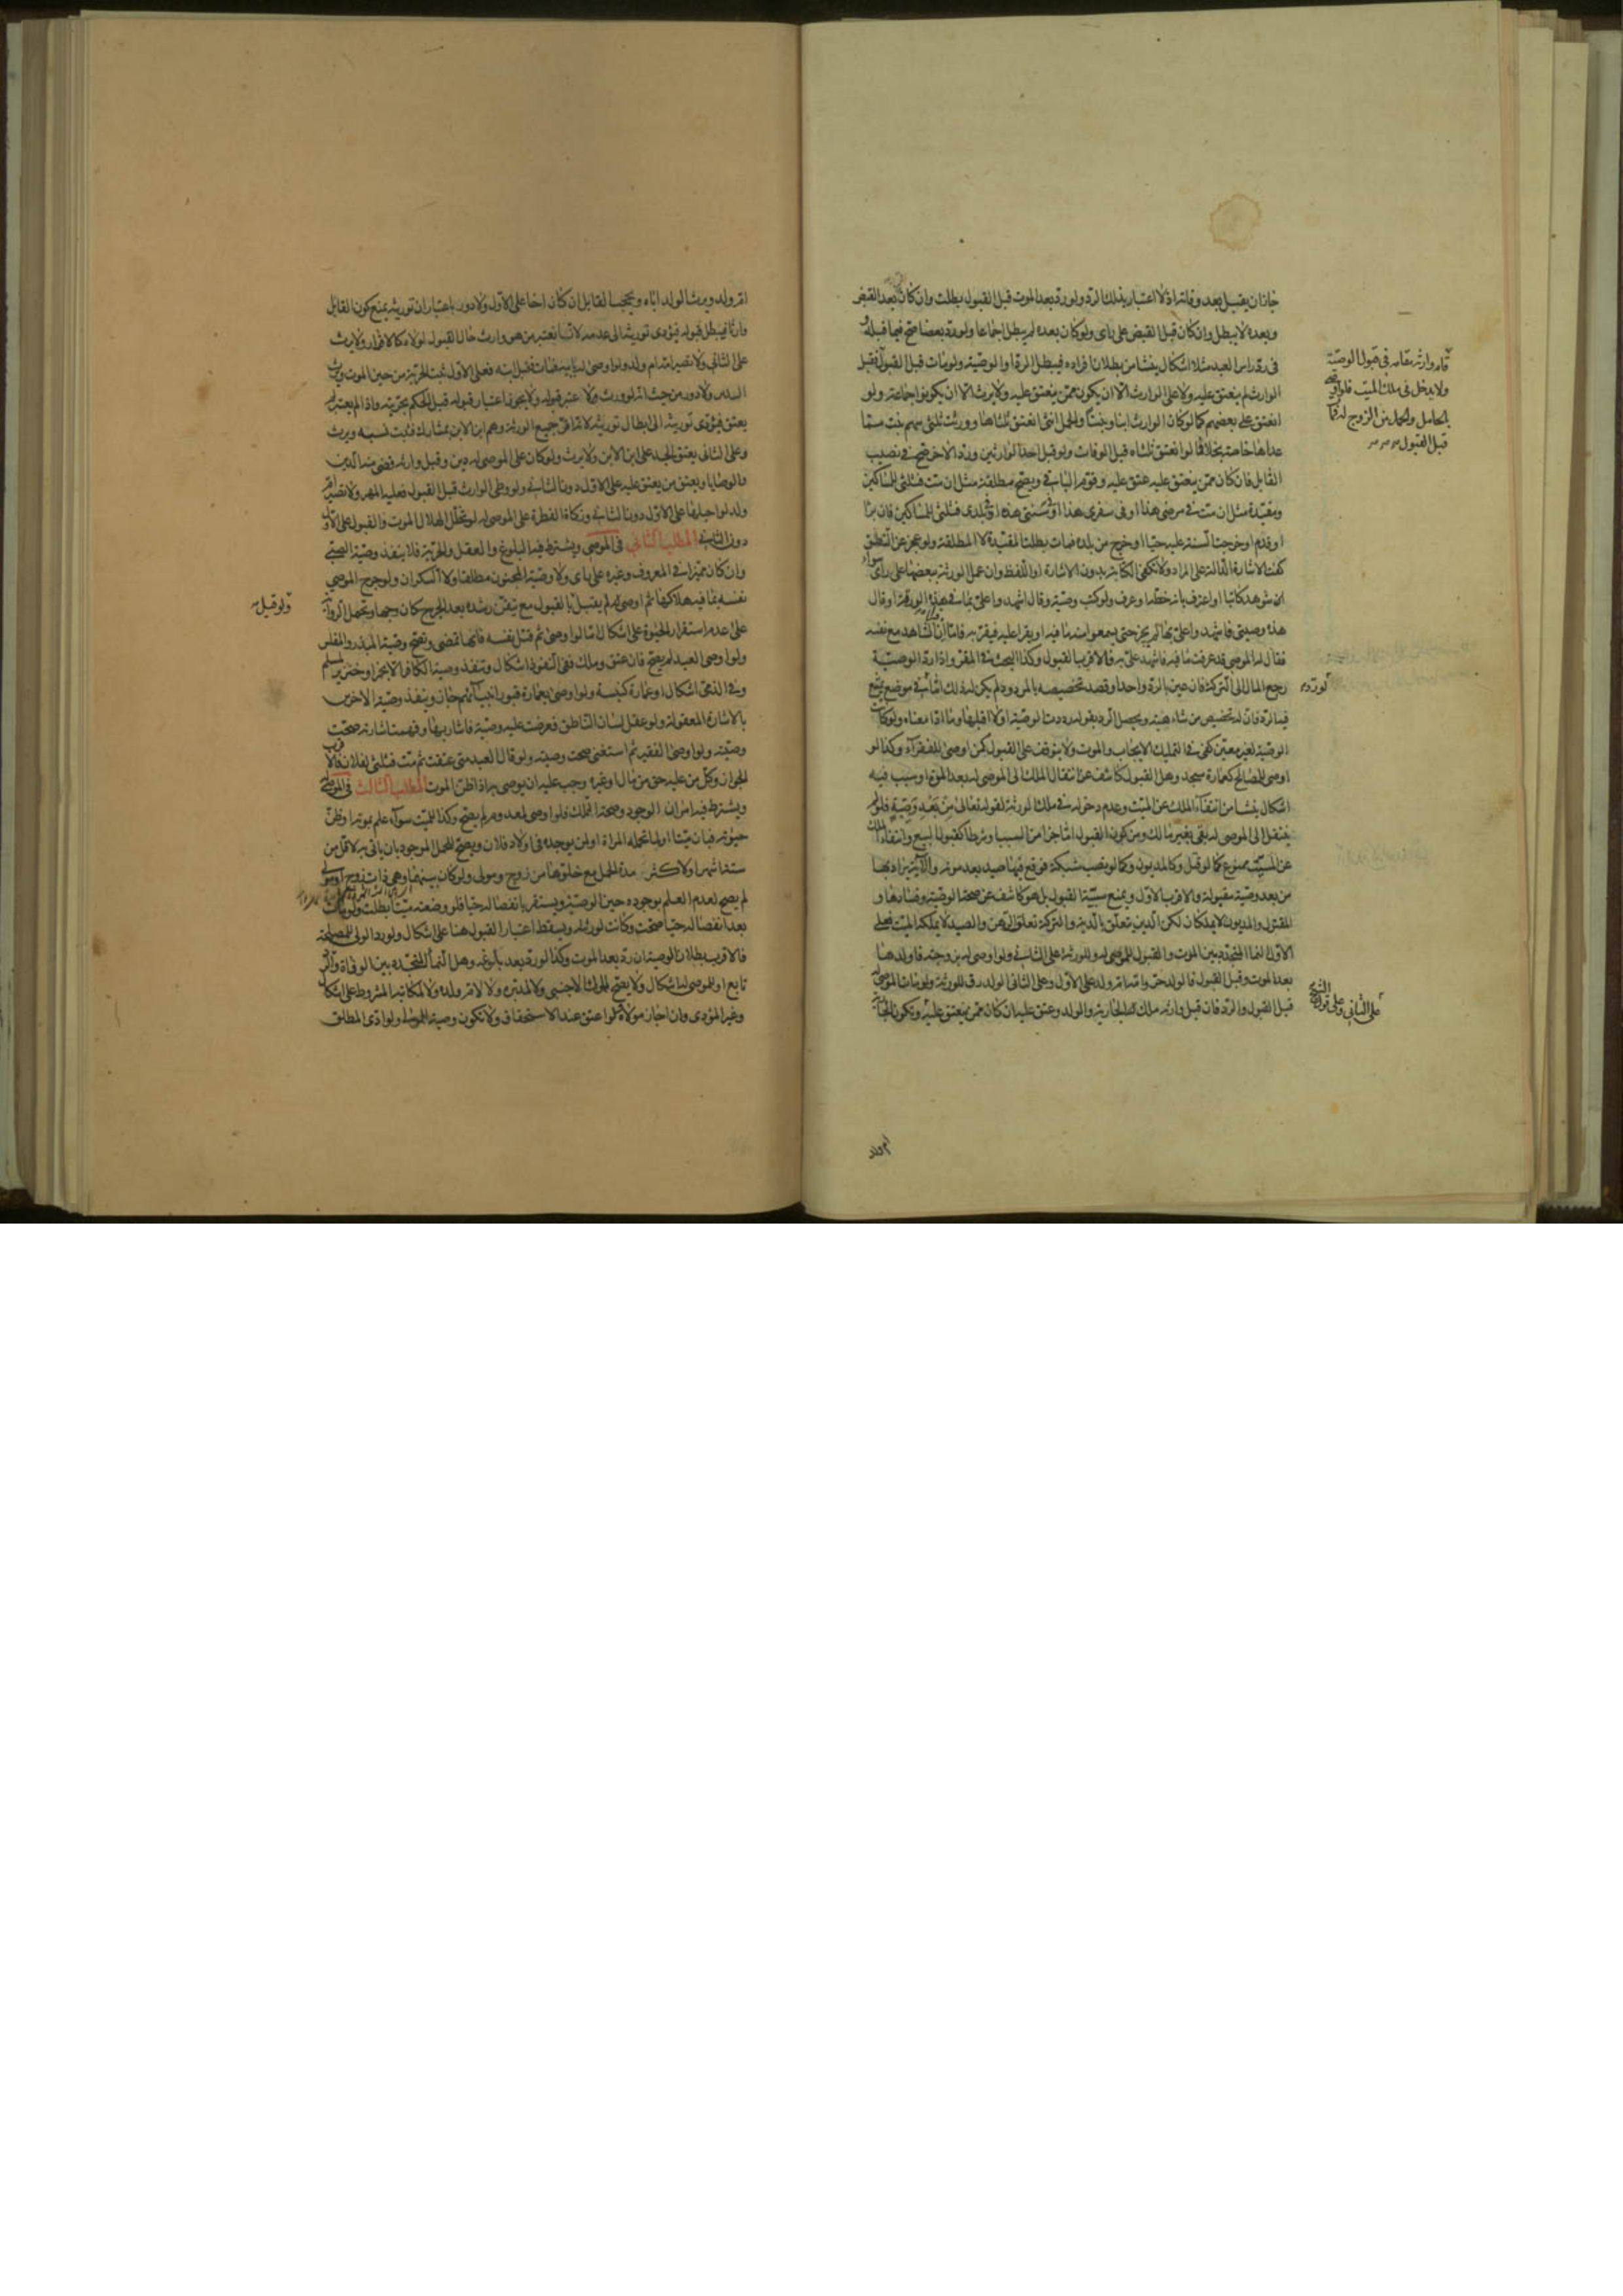 جاز ان يقبل بعد وفاته اذ لا اعتبار بذلك الرد ولو رد بعد الموت قبل القبول بطلت وان كان بعد القبض
وبعده لا يبطل وان كان قبل القبض على رأى ولو كان بعده لم يبطل اجماعا ولو رد بعضا صح فيما قبله و
فى رد راس العبد مثلا اشكال ينشأ من بطلان افراده فيبطل الرد او الوصية ولو مات قبل القبول فقبل
الوارث لم ينعتق عليه ولا على الوارث الا ان يكون ممن ينعتق عليه ولا يرث الا ان يكونوا جماعة ولو
انعتق على بعضهم كما لو كان الوارث ابنا وبنتا والحمل انثى انعتق ثلثاها وورثت ثلثى سهم بنت مما
عداها خاصة بخلاف ما لو انعتق ثلثاه قبل الوفات ولو قبل احد الوارثين ورد الاخر صح فى نصيب
القابل فان كان ممن ينعتق عليه عتق عليه وقوم الباقى ويصح مطلقة مثل ان مت فثلثى للمساكين
ومقيدة مثل ان مت فى مرضى هذا او فى سفرى هذا او فى سنتى هذه او فى بلدى فثلثى للمساكين فان برأ
او قدم او خرجت السنة عليه حيا او خرج من بلده فمات بطلت المقيدة لا المطلقة ولو عجز عن النطق
كفت الاشارة الدالة على المراد ولا تكفى الكتابة بدون الاشارة او اللفظ وان عمل الورثة ببعضها على رأى سواء
ان شوهد كاتبا او اعترف بانه خطه او عرف ولو كتب وصية وقال اشهدوا على بما فى هذه الورقة او قال
هذه وصيتى فاشهدوا على بها لم يجز حتى يسمعوا منه ما فيه او يقرا عليه فيقر به فاما اذا كان الشاهد مع نفسه
فقال له الموصى قد عرفت ما فيه فاشهد على به فالاقرب القبول وكذا البحث فى المقر واذا رد الوصية
رجع المال الى التركة فان عين بالرد واحدا وقصد تخصيصه بالمردود لم يكن له ذلك اما فى موضع يمتنع
فيه الرد فان له تخصيص من شاء هبته ويحصل الرد بقوله رددت الوصية او لا اقبلها وما ادى معناه ولو كانت
الوصية لغير معين كفى فى التمليك الايجاب والموت ولا يتوقف على القبول كمن اوصى للفقراء وكذا لو
اوصى للمصالح كعمارة مسجد وهل القبول كاشف عن انتقال الملك الى الموصى له بعد الموت او سبب فيه
اشكال ينشأ من انتفاء الملك عن الميت وعدم دخوله فى ملك الورثة لقوله تعالى من بعد وصية فلو لم
ينتقل الى الموصى له بقى بغير مالك ومن كون القبول اما جزءا من السبب او شرطا كقبول البيع وانتفاء الملك
عن الميت ممنوع كما لو قتل وكالمديون وكما لو نصب شبكة فوقع فيها صيد بعد موته والآية يراد بها
من بعد وصية مقبولة والاقرب الاول ويمنع سببية القبول بل هو كاشف عن صحة الوصية وفسادها و
المقتول والمديون لا يملكان لكن الدين تعلق بالدية والتركة تعلق الرهن والصيد لا يملكه الميت فعلى
الاول النماء المتجدد بين الموت والقبول للموصى له وللورثة على الثانى ولو اوصى له بزوجته فاولدها
بعد الموت وقبل القبول فالولد حر وامه ام ولد على الاول وعلى الثانى الولد رق للورثة ولو مات الموصى له
قبل القبول والرد فان قبل وارثه ملك الجارية والولد وعتق عليه ان كان ممن ينعتق عليه وتكون الجارية
قام وارثه مقامه فى قبول الوصية
ولا يدخل فى ملك الميت فلو اوصى
بالحامل والحمل من الزوج له فمات
قبل القبول
لو رده
على الثانى وعلى قول الشيخ
ام ولد
ام ولد ويرث الولد اباه ويحجب القابل ان كان اخا على الاول ولا دور باعتبار ان توريثه يمنع كون القابل
وارثا فيبطل قبوله فيؤدى توريثه الى عدمه لانا نعتبر من هو وارث حال القبول لولاه كالاقرار ولا يرث
على الثانى ولا تصير امه ام ولد ولو اوصى له بابيه فمات فقبل ابنه فعلى الاول ثبت الحرية من حين الموت ويرث
السدس ولا دور من حيث انه لو ورث لاعتبر قبوله ولا يجوز اعتبار قبوله قبل الحكم بحريته واذا لم يعتبر لم
يعتق فيؤدى توريثه الى ابطال توريثه لانه اقر جميع الورثة وهم ابن الابن بمشارك فثبت نسبه ويرث
وعلى الثانى يعتق الجد على ابن الابن ولا يرث ولو كان على الموصى له دين وقبل وارثه قضى منه الدين
والوصايا ويعتق من يعتق عليه على الاول دون الثانى ولو وطى الوارث قبل القبول فعليه المهر ولا تصير ام
ولد لو احبلها على الاول دون الثانى وزكاة الفطرة على الموصى له لو تخلل الهلال الموت والقبول على الاول
دون الثانى المطلب الثانى فى الموصى ويشترط فيه البلوغ والعقل والحرية فلا ينفذ وصية الصبى
وان كان مميزا فى المعروف وغيره على رأى ولا وصية المجنون مطلقا ولا السكران ولو جرح الموصى
نفسه بما فيه هلاكها ثم اوصى لم يقبل بالقبول مع تيقن رشده بعد الجرح كان وجها وتحمل الرواية
على عدم استقرار الحيوة على اشكال اما لو اوصى ثم قتل نفسه فانها تمضى وتصح وصية المبذر والمفلس
ولو اوصى العبد لم يصح فان عتق وملك ففى النفوذ اشكال وتنفذ وصية الكافر الا بخمر او خنزير لمسلم
وفى الذمى اشكال او عمارة كنيسة ولو اوصى بعمارة قبور انبيائهم جاز وينفذ وصية الاخرس
بالاشارة المعقولة ولو عقل لسان الناطق فعرضت عليه وصيته فاشار بها وفهمت اشارته صحت
وصيته ولو اوصى الفقير ثم استغنى صحت وصيته ولو قال العبد متى عتقت ثم مت فثلثى لفلان فالاقرب
الجواز وكل من عليه حق من مال او غيره وجب عليه ان يوصى به اذا ظن الموت المطلب الثالث فى الموصى له
ويشترط فيه امران الوجود وصحة التملك فلو اوصى لمعدوم لم يصح وكذا لميت سواء علم بموته او ظن
حيوته فبان ميتا او لما تحمله المراة او لمن يوجد من اولاد فلان ويصح للحمل الموجود بان ياتى به لاقل من
ستة اشهر او لاكثر مدة الحمل مع خلوها من زوج ومولى ولو كان بينهما وهى ذات زوج او مولى
لم يصح لعدم العلم بوجوده حين الوصية ويستقر بانفصاله حيا فلو وضعته ميتا بطلت ولو مات
بعد انفصاله حيا صحت وكانت لورثته ويسقط اعتبار القبول هنا على اشكال ولو رد الولى لمصلحة
فالاقرب بطلان الوصية ان رد بعد الموت وكذا لو رد بعد بلوغه وهل النماء المتجدد بين الوفاة والرد
تابع او للموصى له اشكال ولا يصح لمملوك الاجنبى ولا لمدبره ولا لام ولده ولا لمكاتبه المشروط على اشكال
وغير المؤدى وان اجاز مولاه او اعتق عند الاستحقاق ولا تكون وصية للمولى ولو ادى المطلق
ولو قيل